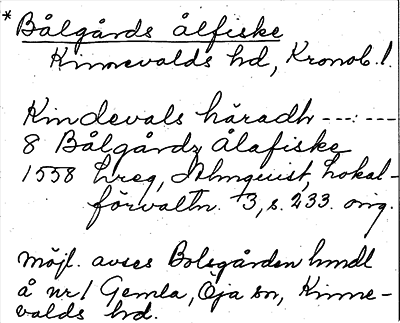 * Bålgårds ålfiske
Kinnevalds hd, Kronob. l.
Kindevals häradh --- : ---
8 Bålgårdz Ålafiske
1558 hreg, Almquist, Lokal-
förvaltn. 3, s. 233. orig.
Möjl. avses Bolsgården hmdl
å nr 1 Gemla, Öja sn, Kinne-
valds hd.